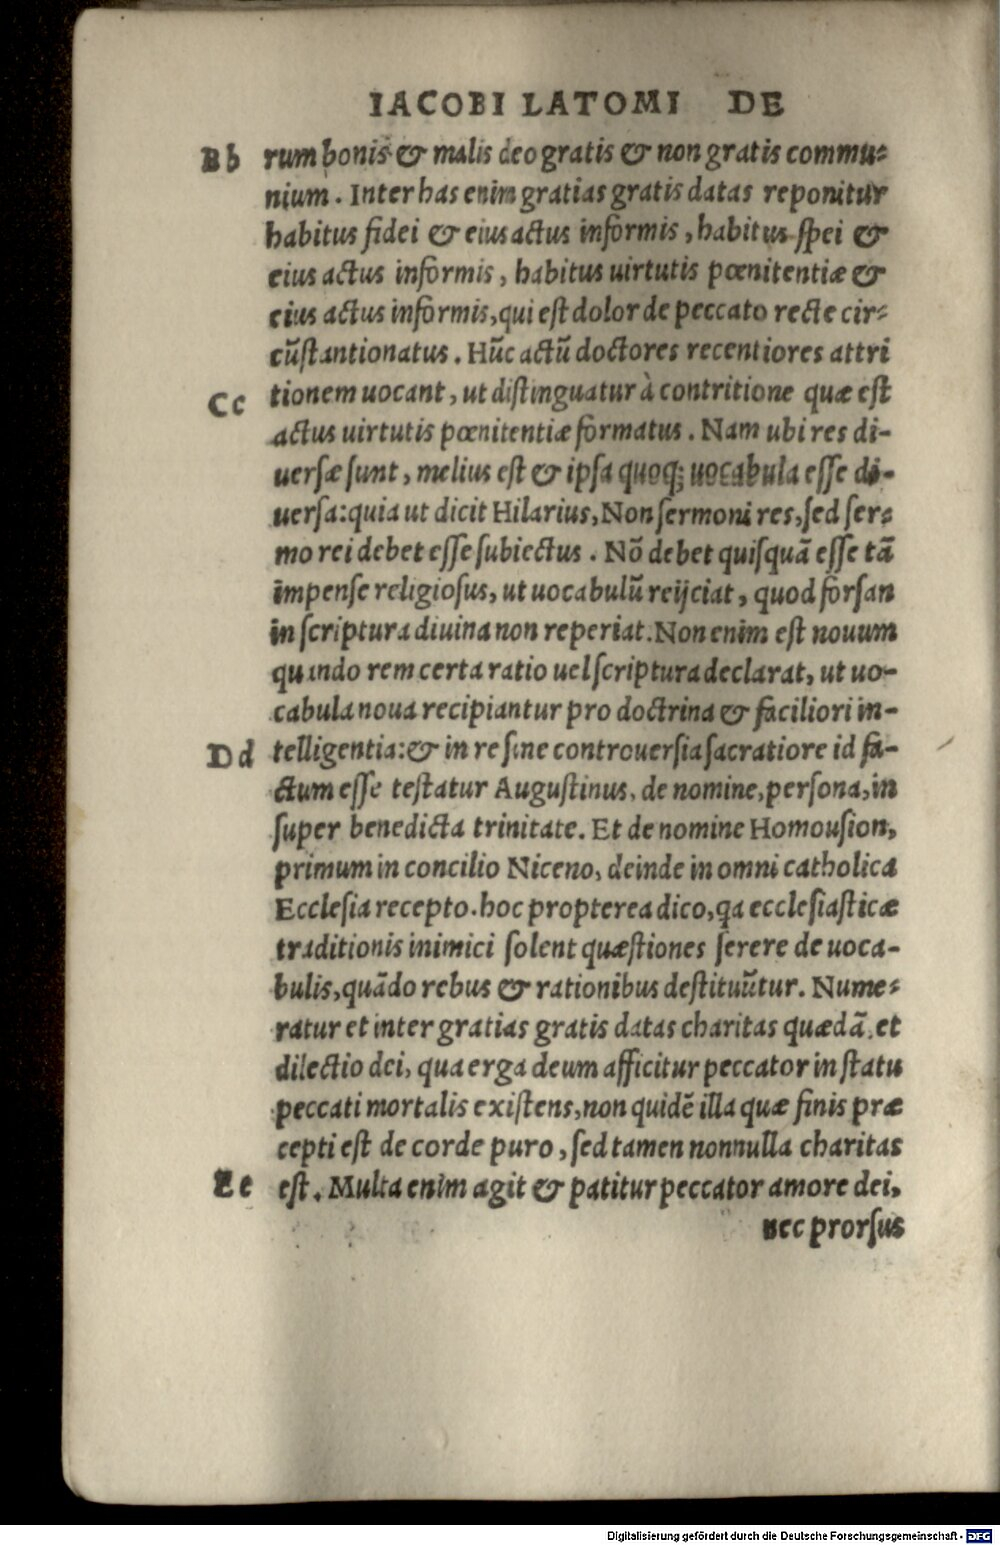 IACOBI LATOMI DE
Bb rum bonis & malis deo gratis & non gratis commu-
nium. Inter has enim gratias gratis datas reponitur
habitus fidei & eius actus informis, habitus spei &
eius actus informis, habitus uirtutis pœnitentiæ &
eius actus informis, qui est dolor de peccato recte cir-
cũstantionatus. Hũc actũ doctores recentiores attri
Cc tionem uocant, ut distinguatur à contritione quæ est
actus uirtutis pœnitentiæ formatus. Nam ubi res di-
uersæ sunt, melius est & ipsa quoq; uocabula esse di-
uersa: quia ut dicit Hilarius, Non sermoni res, sed ser-
mo rei debet esse subiectus. Nõ debet quisquã esse tã
impense religiosus, ut uocabulũ reijciat, quod forsan
in scriptura diuina non reperiat. Non enim est nouum
quando rem certa ratio uel scriptura declarat, ut uo-
cabula noua recipiantur pro doctrina & faciliori in-
Dd telligentia: & in re sine controuersia sacratiore id fa-
ctum esse testatur Augustinus, de nomine, persona, in
super benedicta trinitate. Et de nomine Homousion,
primum in concilio Niceno, deinde in omni catholica
Ecclesia recepto. hoc propterea dico, qa ecclesiasticæ
traditionis inimici solent quæstiones serere de uoca-
bulis, quãdo rebus & rationibus destituũtur. Nume-
ratur et inter gratias gratis datas charitas quædã, et
dilectio dei, qua erga deum afficitur peccator in statu
peccati mortalis existens, non quidẽ illa quæ finis præ
cepti est de corde puro, sed tamen nonnulla charitas
Ee est. Multa enim agit & patitur peccator amore dei,
nec prorsus
Digitalisierung gefördert durch die Deutsche Forschungsgemeinschaft - DFG